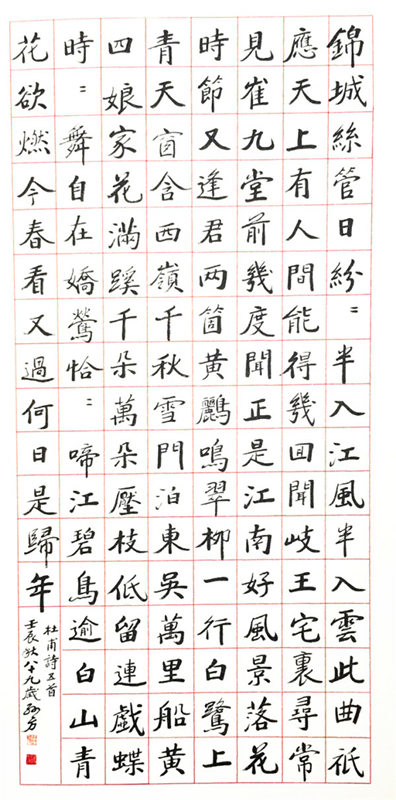 錦城絲管日紛〻半入江風半入雲此曲祇
應天上有人間能得幾囬聞岐王宅裏尋常
見崔九堂前幾度聞正是江南好風景落花
時節又逢君两箇黃鸝鳴翠柳一行白鷺上
青天窗含西嶺千秋雪門泊東吳萬里船黃
四娘家花滿蹊千朵萬朵壓枝低留連戲蝶
時〻舞自在嬌鶯恰〻啼江碧鳥逾白山青
花欲燃今春看又過何日是歸年
杜甫詩五首
壬辰秋八十九歲